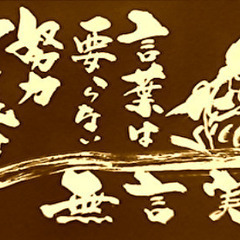 言葉は
要らない
努力
無言実